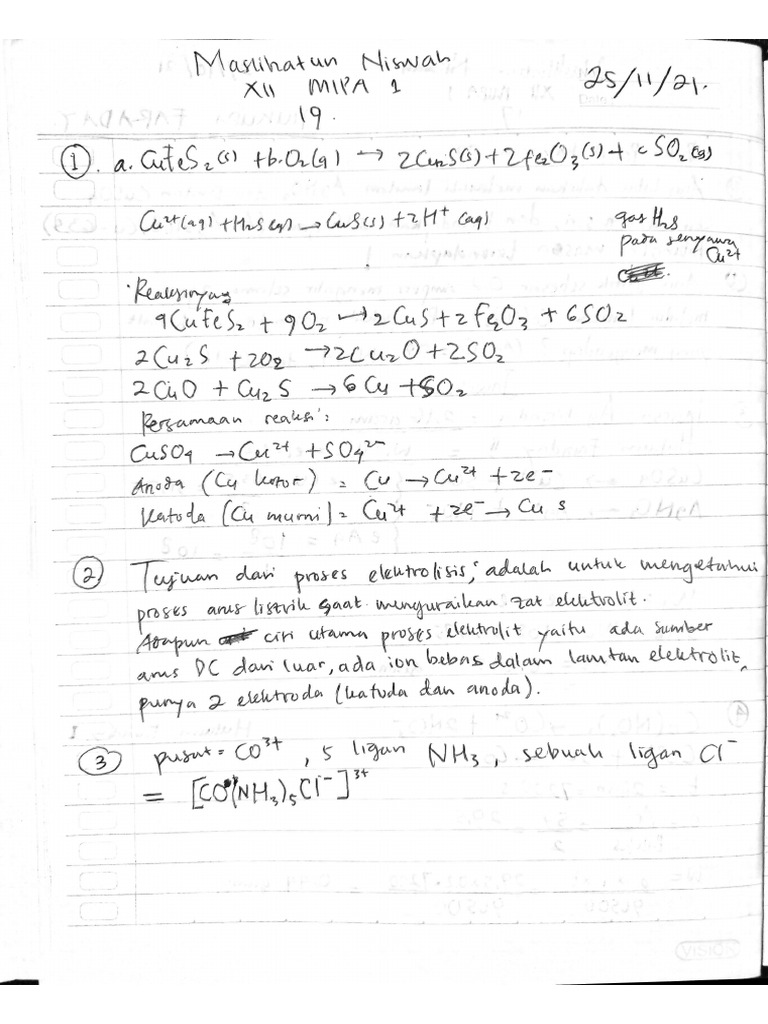 Maslihatun Niswah
XII MIPA 1
25/11/21.
19.
① a. CuFeS₂(s) + b.O₂(g) → 2Cu₂S(s) + 2Fe₂O₃(s) + cSO₂(g)
Cu²⁺(aq) + H₂S(g) → CuS(s) + 2H⁺(aq)
gas H₂S
pada senyawa
Cu²⁺
Reaksinya
4CuFeS₂ + 9O₂ → 2CuS + 2Fe₂O₃ + 6SO₂
2Cu₂S + 2O₂ → 2Cu₂O + 2SO₂
2CuO + Cu₂S → 6Cu + SO₂
Persamaan reaksi :
CuSO₄ → Cu²⁺ + SO₄²⁻
Anoda (Cu kotor) = Cu → Cu²⁺ + 2e⁻
Katoda (Cu murni) = Cu²⁺ + 2e⁻ → Cu s
② Tujuan dari proses elektrolisis, adalah untuk mengetahui
proses arus listrik saat menguraikan zat elektrolit.
Adapun ciri utama proses elektrolit yaitu ada sumber
arus DC dari luar, ada ion bebas dalam larutan elektrolit,
punya 2 elektroda (katoda dan anoda).
③ pusat = CO³⁺, 5 ligan NH₃, sebuah ligan Cl⁻
= [CO(NH₃)₅Cl⁻]³⁺
VISION